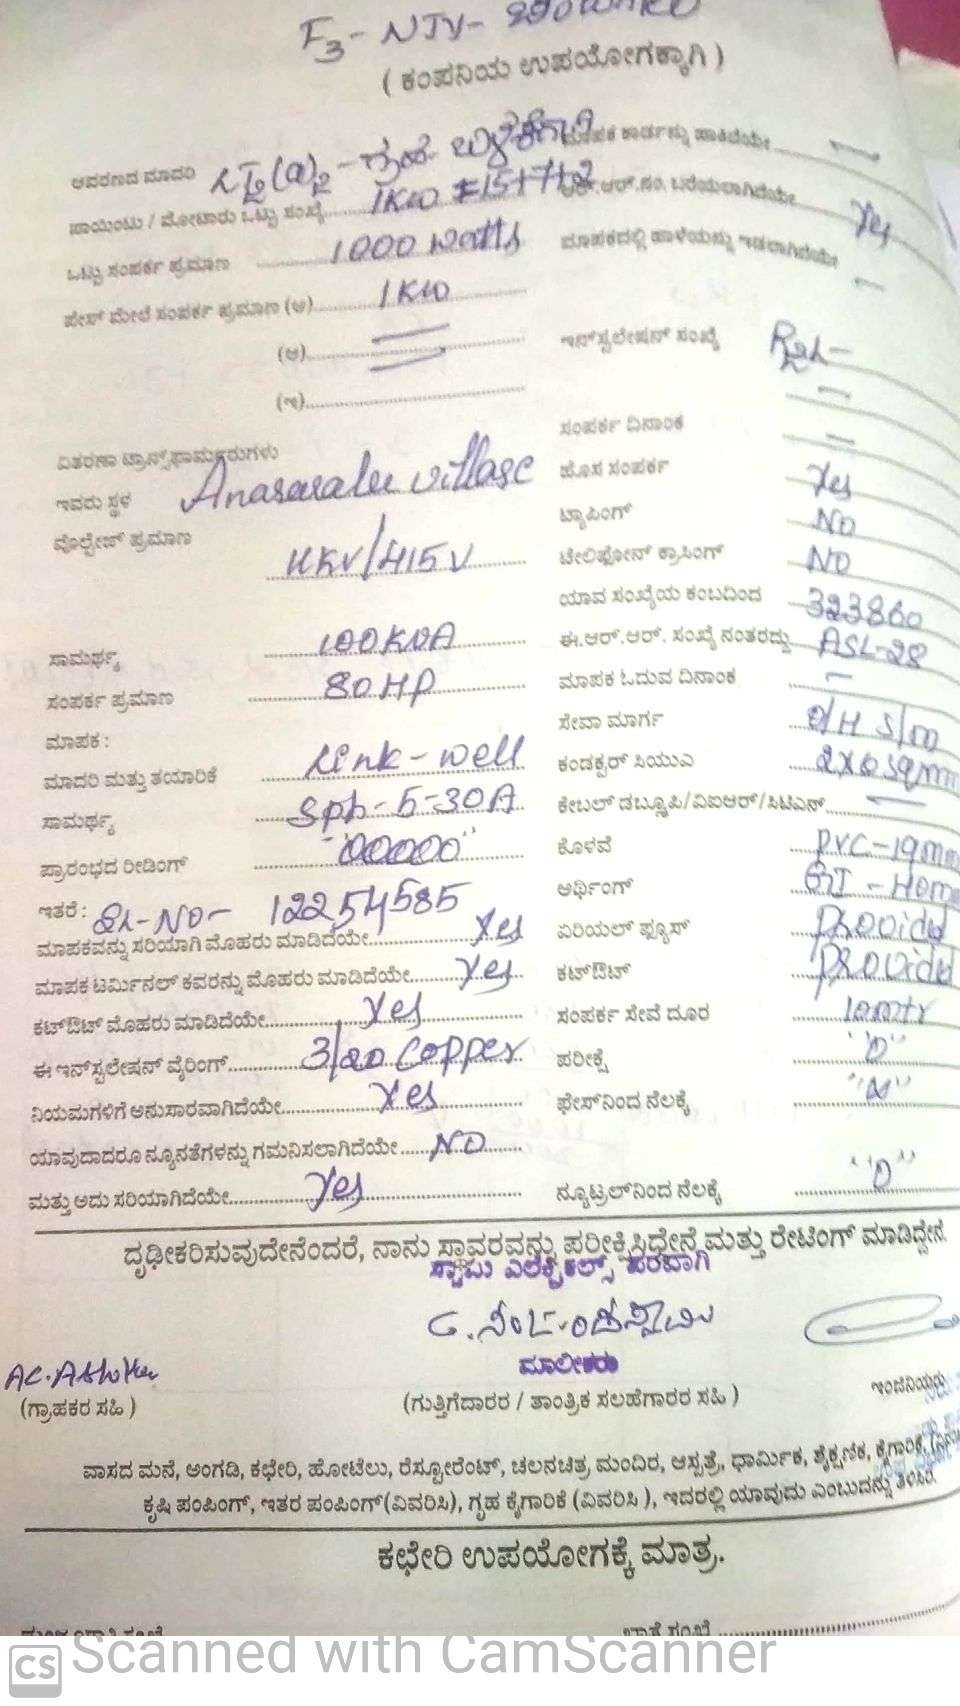 F3 - NJY-
( ಕಂಪನಿಯ ಉಪಯೋಗಕ್ಕಾಗಿ )
ಆವರಣದ ಮಾದರಿ LT2(a)2 - ಗೃಹ ಬಳಕೆಗಾಗಿ ಮಾಪಕ ಕಾರ್ಡನ್ನು ಹಾಕಿದೆಯೇ —
ಪಾಯಿಂಟು / ಮೋಟಾರು ಒಟ್ಟು ಸಂಖ್ಯೆ 1KW ಆರ್.ಆರ್.ನಂ. ಬರೆಯಲಾಗಿದೆಯೇ Yes
ಒಟ್ಟು ಸಂಪರ್ಕ ಪ್ರಮಾಣ 1000 watts ಮಾಪಕದಲ್ಲಿ ಹಾಳೆಯನ್ನು ಇಡಲಾಗಿದೆಯೇ —
ಫೇಸ್ ಮೇಲೆ ಸಂಪರ್ಕ ಪ್ರಮಾಣ (ಅ) 1KW
(ಆ) ಇನ್‌ಸ್ಟಲೇಷನ್ ಸಂಖ್ಯೆ
(ಇ) —
ಸಂಪರ್ಕ ದಿನಾಂಕ —
ವಿತರಣಾ ಟ್ರಾನ್ಸ್‌ಫಾರ್ಮರುಗಳು
ಇವರು ಸ್ಥಳ village ಹೊಸ ಸಂಪರ್ಕ Yes
ವೊಲ್ಟೇಜ್ ಪ್ರಮಾಣ 11KV/415V ಟ್ಯಾಪಿಂಗ್ NO
ಟೇಲಿಫೋನ್ ಕ್ರಾಸಿಂಗ್ NO
ಯಾವ ಸಂಖ್ಯೆಯ ಕಂಬದಿಂದ 323860
ಸಾಮರ್ಥ್ಯ 100KVA ಈ.ಆರ್.ಆರ್. ಸಂಖ್ಯೆ ನಂತರದ್ದು ASL-28
ಸಂಪರ್ಕ ಪ್ರಮಾಣ 80HP ಮಾಪಕ ಓದುವ ದಿನಾಂಕ —
ಮಾಪಕ : ಸೇವಾ ಮಾರ್ಗ O/H S/m
ಮಾದರಿ ಮತ್ತು ತಯಾರಿಕೆ Link-well ಕಂಡಕ್ಟರ್ ಸಿಯುಎ 2X6sqmm
ಸಾಮರ್ಥ್ಯ Sph-5-30A ಕೇಬಲ್ ಡಬ್ಲ್ಯೂಪಿ/ವಿಐಆರ್/ಸಿಟಿಎಸ್ —
ಪ್ರಾರಂಭದ ರೀಡಿಂಗ್ "00000" ಕೊಳವೆ PVC-19mm
ಇತರೆ : SL-NO- 12254585 ಅರ್ಥಿಂಗ್ GI -
ಮಾಪಕವನ್ನು ಸರಿಯಾಗಿ ಮೊಹರು ಮಾಡಿದೆಯೇ Yes ಏರಿಯಲ್ ಫ್ಯೂಸ್ Provided
ಮಾಪಕ ಟರ್ಮಿನಲ್ ಕವರನ್ನು ಮೊಹರು ಮಾಡಿದೆಯೇ Yes ಕಟ್‌ಔಟ್ Provided
ಕಟ್‌ಔಟ್ ಮೊಹರು ಮಾಡಿದೆಯೇ Yes ಸಂಪರ್ಕ ಸೇವೆ ದೂರ 10mtr
ಈ ಇನ್‌ಸ್ಟಲೇಷನ್ ವೈರಿಂಗ್ 3/20 Copper ಪರೀಕ್ಷೆ "0"
ನಿಯಮಗಳಿಗೆ ಅನುಸಾರವಾಗಿದೆಯೇ Yes ಫೇಸ್‌ನಿಂದ ನೆಲಕ್ಕೆ
ಯಾವುದಾದರೂ ನ್ಯೂನತೆಗಳನ್ನು ಗಮನಿಸಲಾಗಿದೆಯೇ NO
ಮತ್ತು ಅದು ಸರಿಯಾಗಿದೆಯೇ Yes ನ್ಯೂಟ್ರಲ್‌ನಿಂದ ನೆಲಕ್ಕೆ "0"
ದೃಢೀಕರಿಸುವುದೇನೆಂದರೆ, ನಾನು ಸ್ಥಾವರವನ್ನು ಪರೀಕ್ಷಿಸಿದ್ದೇನೆ ಮತ್ತು ರೇಟಿಂಗ್ ಮಾಡಿದ್ದೇನೆ
ಸ್ವಾಮಿ ಎಲೆಕ್ಟ್ರಿಕಲ್ಸ್ ಪರವಾಗಿ
ಮಾಲೀಕರು
(ಗ್ರಾಹಕರ ಸಹಿ ) (ಗುತ್ತಿಗೆದಾರರ / ತಾಂತ್ರಿಕ ಸಲಹೆಗಾರರ ಸಹಿ ) ಇಂಜಿನಿಯರು
ವಾಸದ ಮನೆ, ಅಂಗಡಿ, ಕಛೇರಿ, ಹೋಟೆಲು, ರೆಸ್ಟೋರೆಂಟ್, ಚಲನಚಿತ್ರ ಮಂದಿರ, ಆಸ್ಪತ್ರೆ, ಧಾರ್ಮಿಕ, ಶೈಕ್ಷಣಿಕ, ಕೈಗಾರಿಕೆ,
ಕೃಷಿ ಪಂಪಿಂಗ್, ಇತರ ಪಂಪಿಂಗ್(ವಿವರಿಸಿ), ಗೃಹ ಕೈಗಾರಿಕೆ (ವಿವರಿಸಿ ), ಇದರಲ್ಲಿ ಯಾವುದು ಎಂಬುದನ್ನು ತಿಳಿಸಿರಿ.
ಕಛೇರಿ ಉಪಯೋಗಕ್ಕೆ ಮಾತ್ರ.
CS Scanned with CamScanner